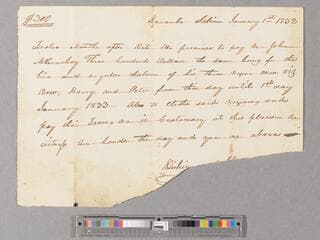 $300 Savannah Station January 1st 1832
Twelve Months after Date We promise to pay Mr. John
McKinchay Three hundred dollars the same being for the
hire and regular dutson of his three Negro men viz
Brow, Harry and Peter from this day until 1st day
January 1833. Also to cloth said Negroes and
pay their Taxes as is Customary at this place as
witness our hands the day and year as above